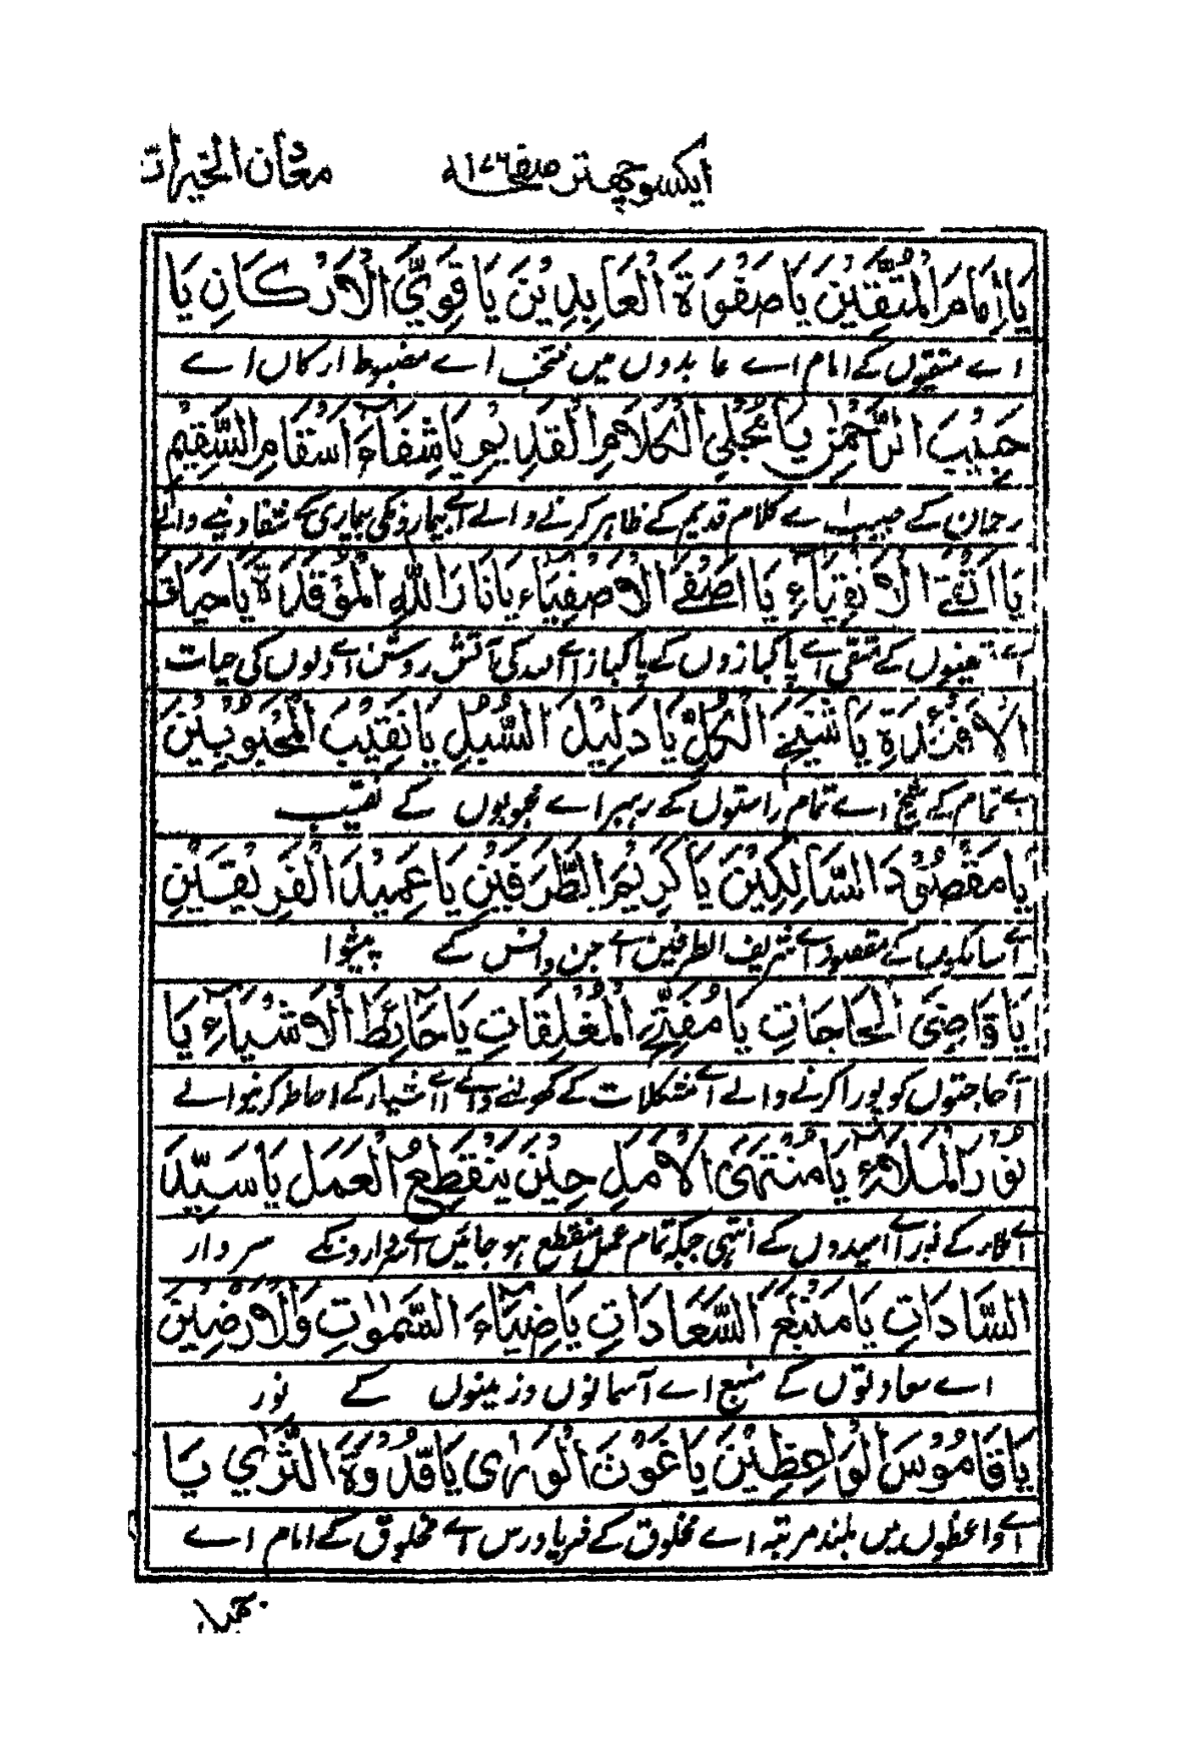 معدن الخیرات ایکسوچھہتر صفحہ ۱۷۶
يَا إِمَامَ الْمُتَّقِيْنَ يَا صَفْوَةَ الْعَابِدِيْنَ يَا قَوِيَّ الْاَرْكَانِ يَا
اے متقیوں کے امام اے عابدوں میں منتخب اے مضبوط ارکان اے
حَبِيْبَ الرَّحْمٰنِ يَا مُجْلِيَ الْكَلَامِ الْقَدِيْمِ يَا شِفَآءَ اَسْقَامِ السَّقِيْمِ
رحمان کے حبیب اے کلام قدیم کے ظاہر کرنے والے اے بیمارونکی بیماری کے شفا دینے والے
يَا اَتْقَى الْاَتْقِيَآءِ يَا اَصْفَى الْاَصْفِيَآءِ يَا نَارَ اللّٰهِ الْمُؤْقَدَةَ يَا حَيَاتَ
کے متقی اے پاکبازوں کے پاکباز اے اللہ کی آتش روشن اے دلوں کی حیات
الْاَفْئِدَةِ يَا شَيْخَ الْكُلِّ يَا دَلِيْلَ السُّبُلِ يَا نَقِيْبَ الْمَحْبُوْبِيْنَ
اے تمام کے شیخ اے تمام راستوں کے رہبر اے محبوبوں کے نقیب
يَا مَقْصُوْدَ السَّالِكِيْنَ يَا كَرِيْمَ الطَّرَفَيْنِ يَا عَمِيْدَ الْفَرِيْقَيْنِ
اے سالکوں کے مقصود اے شریف الطرفین اے جن و انس کے پیشوا
يَا قَاضِيَ الْحَاجَاتِ يَا مُفَتِّحَ الْمُغْلَقَاتِ يَا حَآئِطَ الْاَشْيَآءِ يَا
اے حاجتوں کو پورا کرنے والے اے مشکلات کے کھولنے والے اے اشیاء کے احاطہ کرنیوالے
نُوْرَ الْمَلَاءِ يَا مُنْتَهَى الْاَمَلِ حِيْنَ يَنْقَطِعُ الْعَمَلُ يَا سَيِّدَ
اے ملاء کے نور اے امیدوں کے انتہی جبکہ تمام عمل منقطع ہو جائیں اے سردارونکے سردار
السَّادَاتِ يَا مَنْبَعَ السَّعَادَاتِ يَا ضِيَآءَ السَّمٰوٰتِ وَالْاَرْضِيْنَ
اے سعادتوں کے منبع اے آسمانوں و زمینوں کے نور
يَا قَامُوْسَ الْوَاعِظِيْنَ يَا غَوْثَ الْوَرٰى يَا قُدْوَةَ الثَّرٰي يَا
اے واعظوں میں بلند مرتبہ اے مخلوق کے فریاد رس اے مخلوق کے امام اے